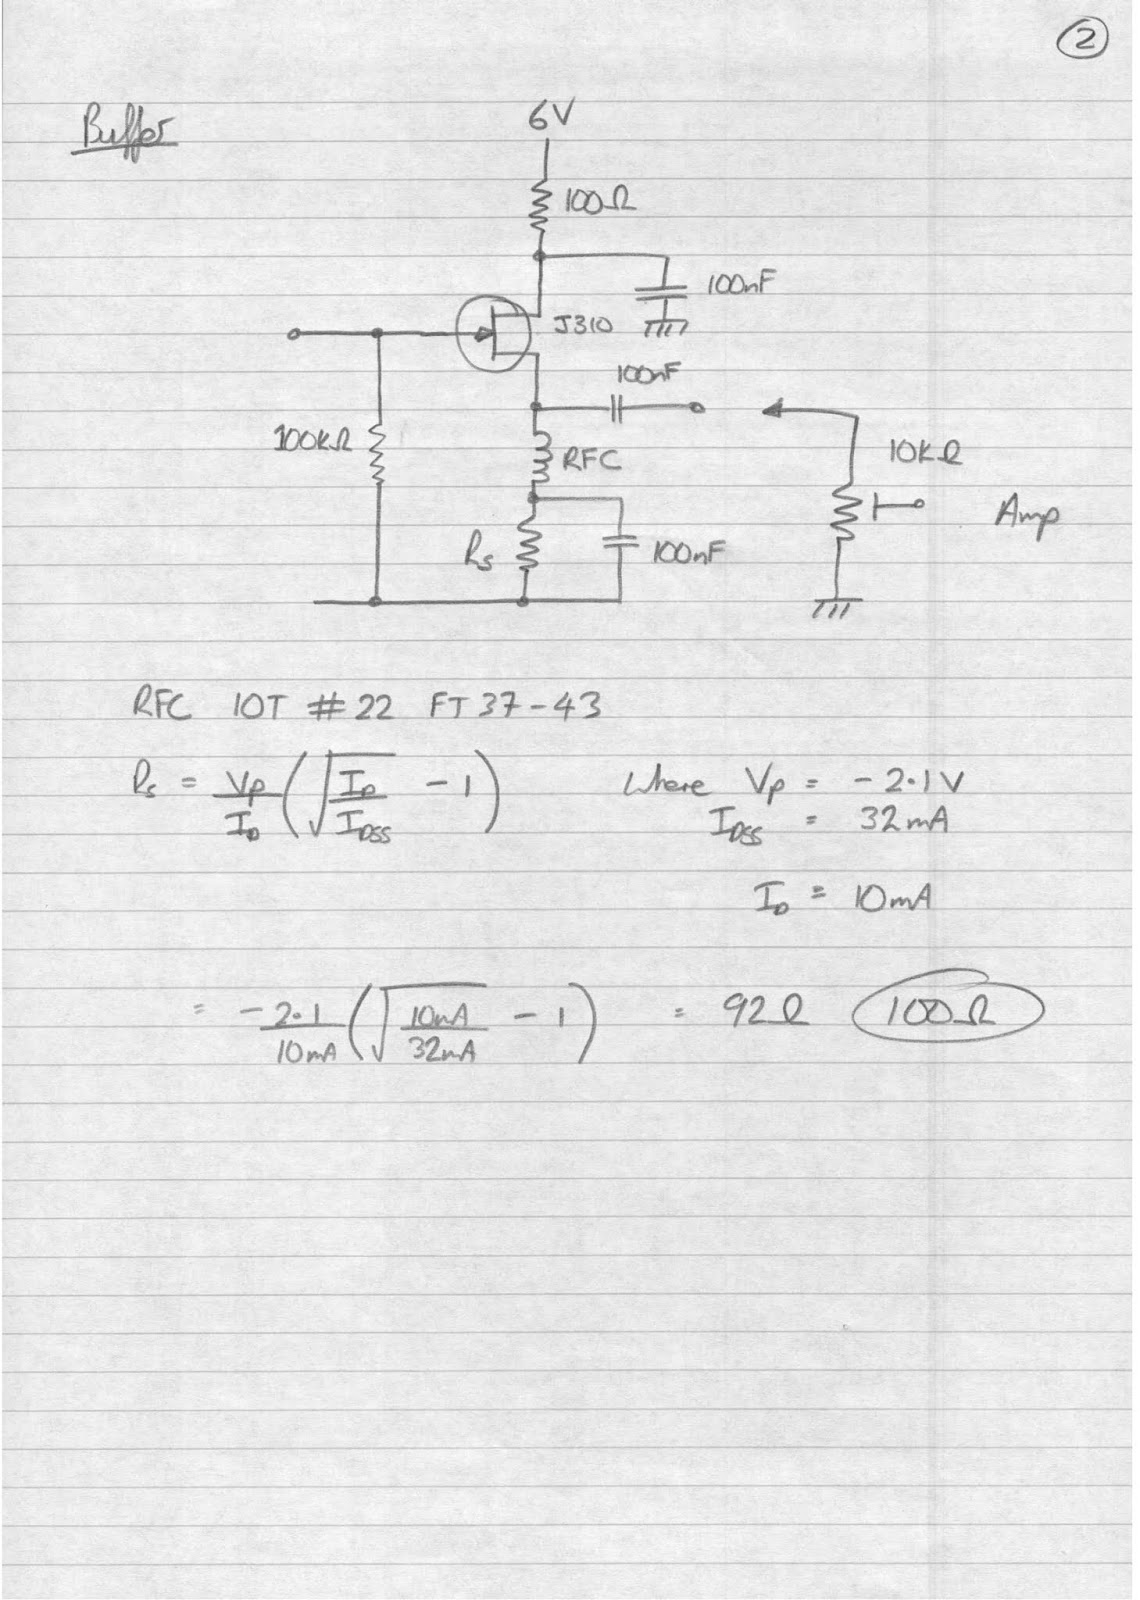 2
Buffer
6V
100Ω
100nF
J310
100nF
100kΩ
RFC
10kΩ
Amp
Rs
100nF
RFC 10T #22 FT37-43
Rs = Vp/ID (√(ID/IDSS) - 1) Where Vp = -2.1V
IDSS = 32mA
ID = 10mA
= -2.1/10mA (√(10mA/32mA) - 1) = 92Ω 100Ω